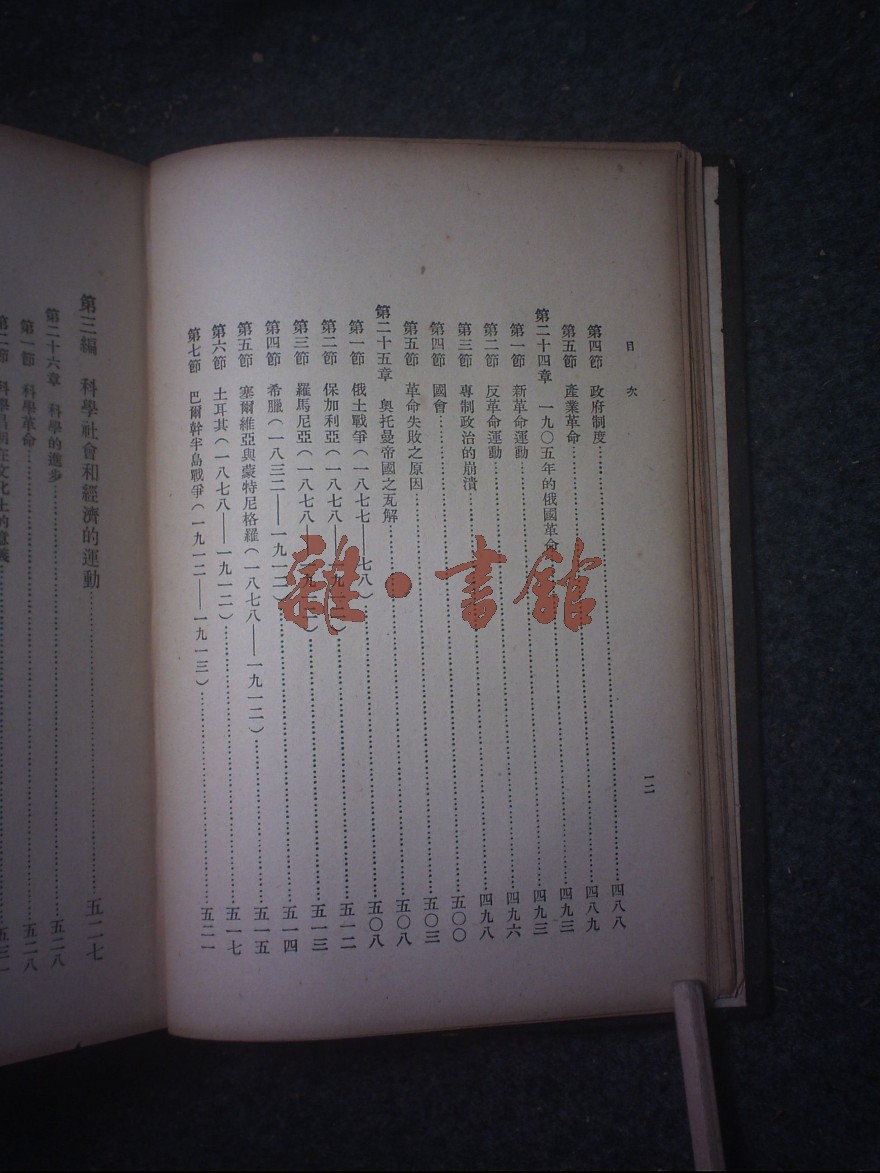 目次
一二
第四節 政府制度……四八八
第五節 產業革命……四八九
第二十四章 一九〇五年的俄國革命……四九三
第一節 新革命運動……四九三
第二節 反革命運動……四九六
第三節 專制政治的崩潰……四九八
第四節 國會……五〇〇
第五節 革命失敗之原因……五〇三
第二十五章 奧托曼帝國之瓦解……五〇八
第一節 俄土戰爭（一八七七——七八）……五〇八
第二節 保加利亞（一八七八——一九一二）……五一二
第三節 羅馬尼亞（一八七八——一九一二）……五一三
第四節 希臘（一八三二——一九一二）……五一四
第五節 塞爾維亞與蒙特尼格羅（一八七八——一九一二）……五一五
第六節 土耳其（一八七八——一九一二）……五一七
第七節 巴爾幹半島戰爭（一九一二——一九一三）……五二一
第三編 科學社會和經濟的運動……五二七
第二十六章 科學的進步……五二八
第一節 科學革命……五二八
第二節 科學昌明在文化上的意義
雜·書館